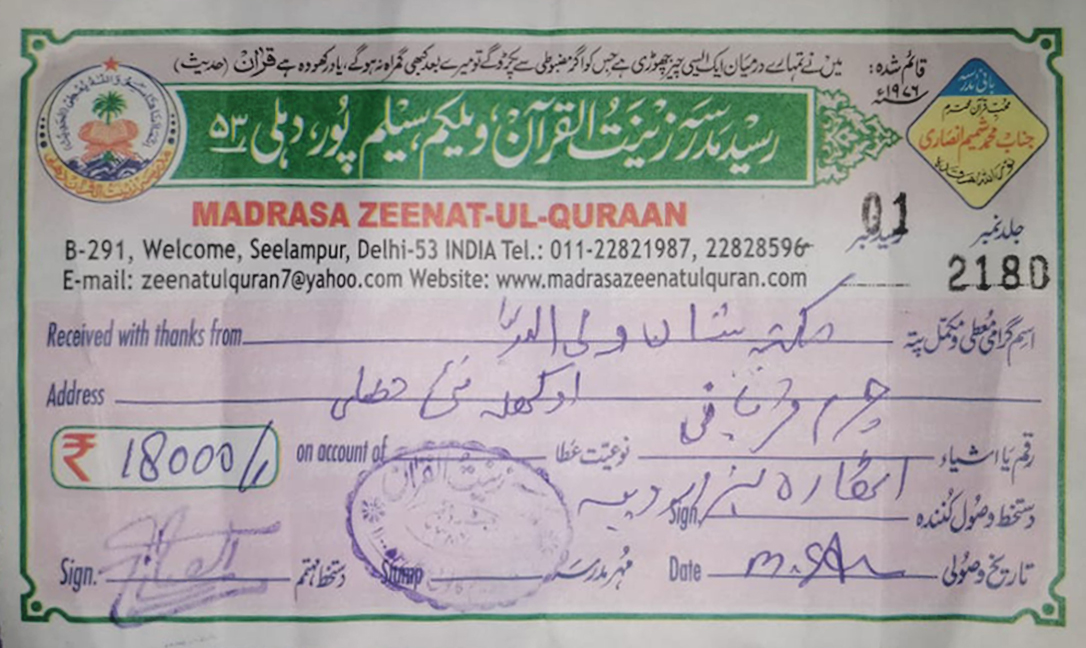 قائم شدہ: میں نے تمہارے درمیان ایک ایسی چیز چھوڑی ہے جس کو اگر مضبوطی سے پکڑو گے تو میرے بعد کبھی گمراہ نہ ہوگے، یاد رکھو وہ ہے قرآن (حدیث)
۱۹۷۶ء
بانی مدرسہ
محب قرآن محترم
جناب محمد شمیم انصاری
رسید مدرسہ زینت القرآن، ویلکم، سیلم پور، دہلی ۵۳
MADRASA ZEENAT-UL-QURAAN
B-291, Welcome, Seelampur, Delhi-53 INDIA Tel.: 011-22821987, 22828596
E-mail: zeenatulquran7@yahoo.com Website: www.madrasazeenatulquran.com
رسید نمبر 01
جلد نمبر 2180
Received with thanks from اسم گرامی معطی و مکمل پتہ
Address اوکھلہ نئی
چرم قربانی
₹ 18000/ on account of نوعیت عطا رقم یا اشیاء
اٹھارہ ہزار روپیہ
Sign. دستخط وصول کنندہ
Sign. دستخط مہتمم Stamp مہر مدرسہ Date تاریخ وصولی
زینت القرآن